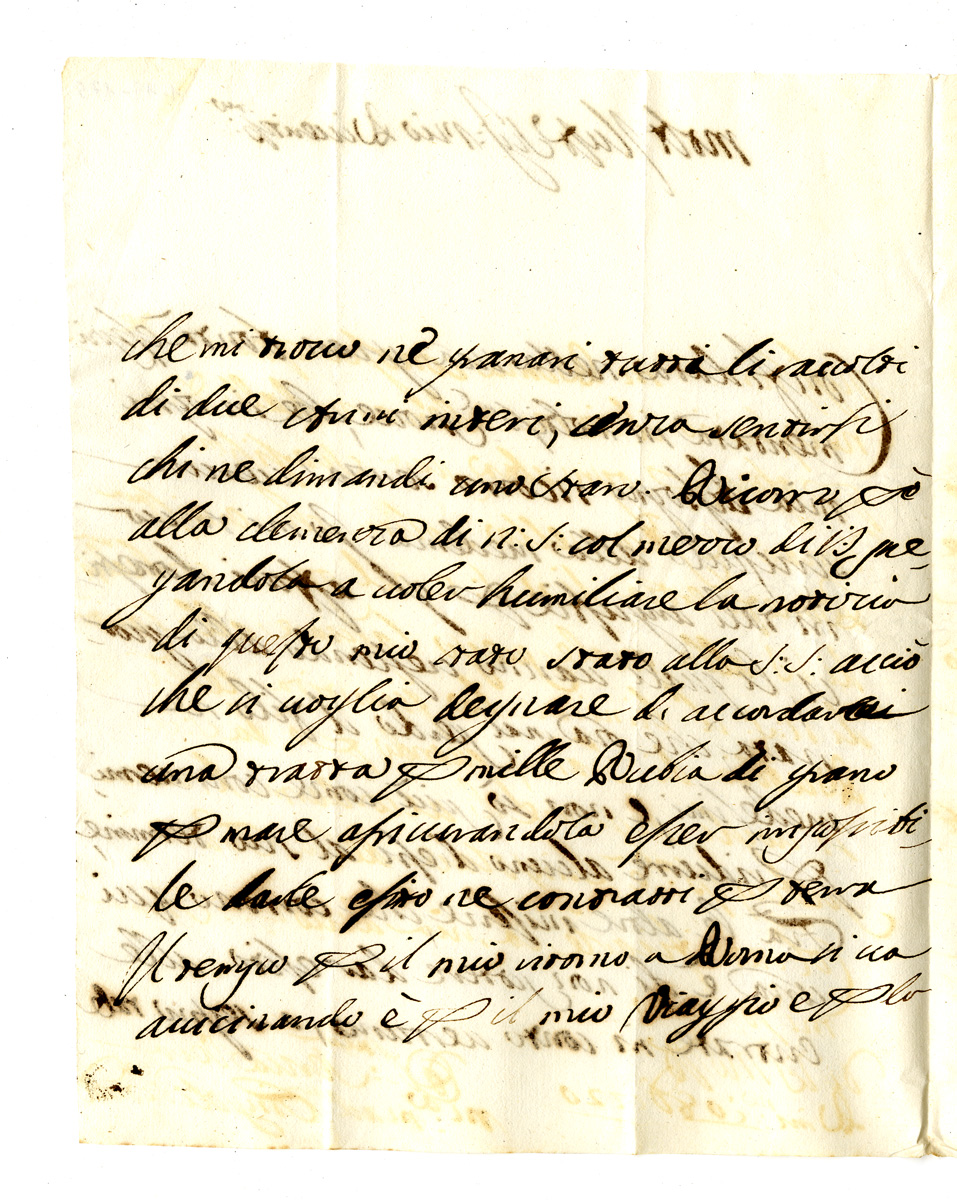 che mi trovo nè granari tutti li raccolti
di due Anni interi, senza sentirsi
chi ne dimandi uno staro. Ricorro p̲ò
alla clemenza di N: S: col mezzo di V.S. pre-
gandola a voler humiliare la notizia
di questo mio stato alla S: S: acciò
che si voglia degnare di accordarmi
una tratta p̲ mille Rubia di grano
p̲ mare assicurandola esser impossibi-
le darle esito ne contratti p̲ terra
Il tempo p̲ il mio ritorno a Roma si va
avicinando è p̲ il mio Viaggio e p̲ lo